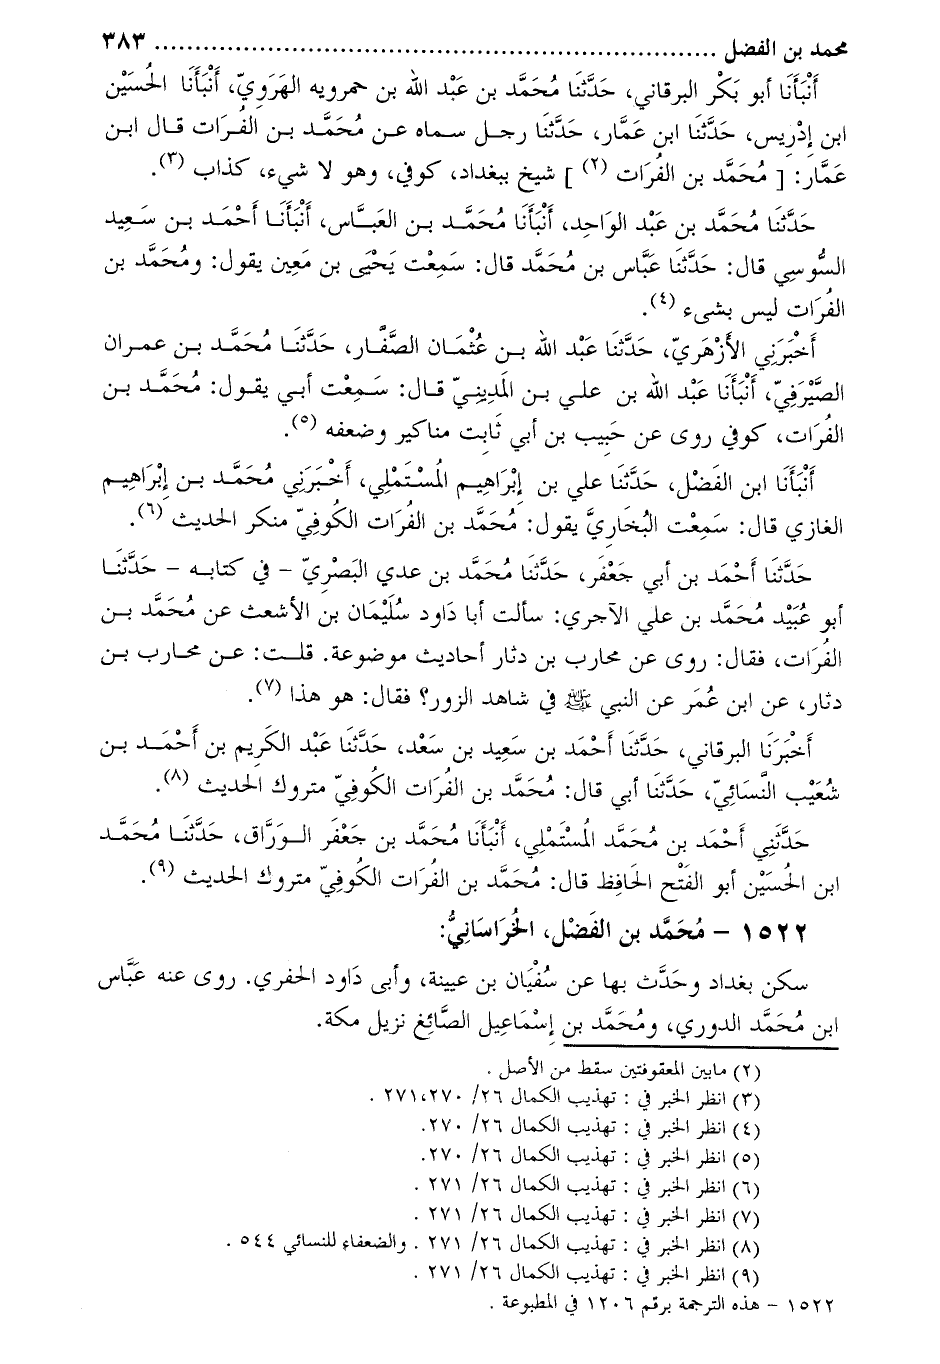 محمد بن الفضل ...................................................................... ٣٨٣
أَنْبَأَنَا أبو بَكْر البرقاني، حَدَّثَنَا مُحَمَّد بن عَبْد الله بن حمرويه الهَرَوِيّ، أَنْبَأَنَا الحُسَيْن
ابن إِدْرِيس، حَدَّثَنَا ابن عَمَّار، حَدَّثَنَا رجل سماه عن مُحَمَّد بن الفُرَات قال ابن
عَمَّار: [ مُحَمَّد بن الفُرَات (٢) ] شيخ ببغداد، كوفي، وهو لا شيء، كذاب (٣).
حَدَّثَنَا مُحَمَّد بن عَبْد الوَاحِد، أَنْبَأَنَا مُحَمَّد بن العَبَّاس، أَنْبَأَنَا أَحْمَد بن سَعِيد
السُّوسِي قال: حَدَّثَنَا عَبَّاس بن مُحَمَّد قال: سَمِعْت يَحْيَى بن مَعِين يقول: ومُحَمَّد بن
الفُرَات ليس بشىء (٤).
أَخْبَرَنِي الأَزْهَرِيّ، حَدَّثَنَا عَبْد الله بن عُثْمَان الصَّفَّار، حَدَّثَنَا مُحَمَّد بن عمران
الصَّيْرَفِيّ، أَنْبَأَنَا عَبْد الله بن علي بن المَدِينِيّ قال: سَمِعْت أبي يقول: مُحَمَّد بن
الفُرَات، كوفي روى عن حَبِيب بن أبي ثَابِت مناكير وضعفه (٥).
أَنْبَأَنَا ابن الفَضْل، حَدَّثَنَا علي بن إِبْرَاهِيم المُسْتَمْلِي، أَخْبَرَنِي مُحَمَّد بن إِبْرَاهِيم
الغازي قال: سَمِعْت البُخَارِيَّ يقول: مُحَمَّد بن الفُرَات الكُوفِيّ منكر الحديث (٦).
حَدَّثَنَا أَحْمَد بن أبي جَعْفَر، حَدَّثَنَا مُحَمَّد بن عدي البَصْرِيّ - في كتابه - حَدَّثَنَا
أبو عُبَيْد مُحَمَّد بن علي الآجري: سألت أبا دَاود سُلَيْمَان بن الأشعث عن مُحَمَّد بن
الفُرَات، فقال: روى عن محارب بن دثار أحاديث موضوعة. قلت: عن محارب بن
دثار، عن ابن عُمَر عن النبي ﷺ في شاهد الزور؟ فقال: هو هذا (٧).
أَخْبَرَنَا البرقاني، حَدَّثَنَا أَحْمَد بن سَعِيد بن سَعْد، حَدَّثَنَا عَبْد الكَرِيم بن أَحْمَد بن
شُعَيْب النَّسَائِيّ، حَدَّثَنَا أبي قال: مُحَمَّد بن الفُرَات الكُوفِيّ متروك الحديث (٨).
حَدَّثَنِي أَحْمَد بن مُحَمَّد المُسْتَمْلِي، أَنْبَأَنَا مُحَمَّد بن جَعْفَر الوَرَّاق، حَدَّثَنَا مُحَمَّد
ابن الحُسَيْن أبو الفَتْح الحَافِظ قال: مُحَمَّد بن الفُرَات الكُوفِيّ متروك الحديث (٩).
١٥٢٢ - مُحَمَّد بن الفَضْل، الخُرَاسَانِيُّ:
سكن بغداد وحَدَّث بها عن سُفْيَان بن عيينة، وأبى دَاود الحفري. روى عنه عَبَّاس
ابن مُحَمَّد الدوري، ومُحَمَّد بن إِسْمَاعِيل الصَّائِغ نزيل مكة.
(٢) مابين المعقوفتين سقط من الأصل .
(٣) انظر الخبر في : تهذيب الكمال ٢٦/ ٢٧١،٢٧٠ .
(٤) انظر الخبر في : تهذيب الكمال ٢٦/ ٢٧٠.
(٥) انظر الخبر في : تهذيب الكمال ٢٦/ ٢٧٠.
(٦) انظر الخبر في : تهذيب الكمال ٢٦/ ٢٧١ .
(٧) انظر الخبر في : تهذيب الكمال ٢٦/ ٢٧١ .
(٨) انظر الخبر في : تهذيب الكمال ٢٦/ ٢٧١ . والضعفاء للنسائي ٥٤٤ .
(٩) انظر الخبر في : تهذيب الكمال ٢٦/ ٢٧١ .
١٥٢٢ - هذه الترجمة برقم ١٢٠٦ في المطبوعة .